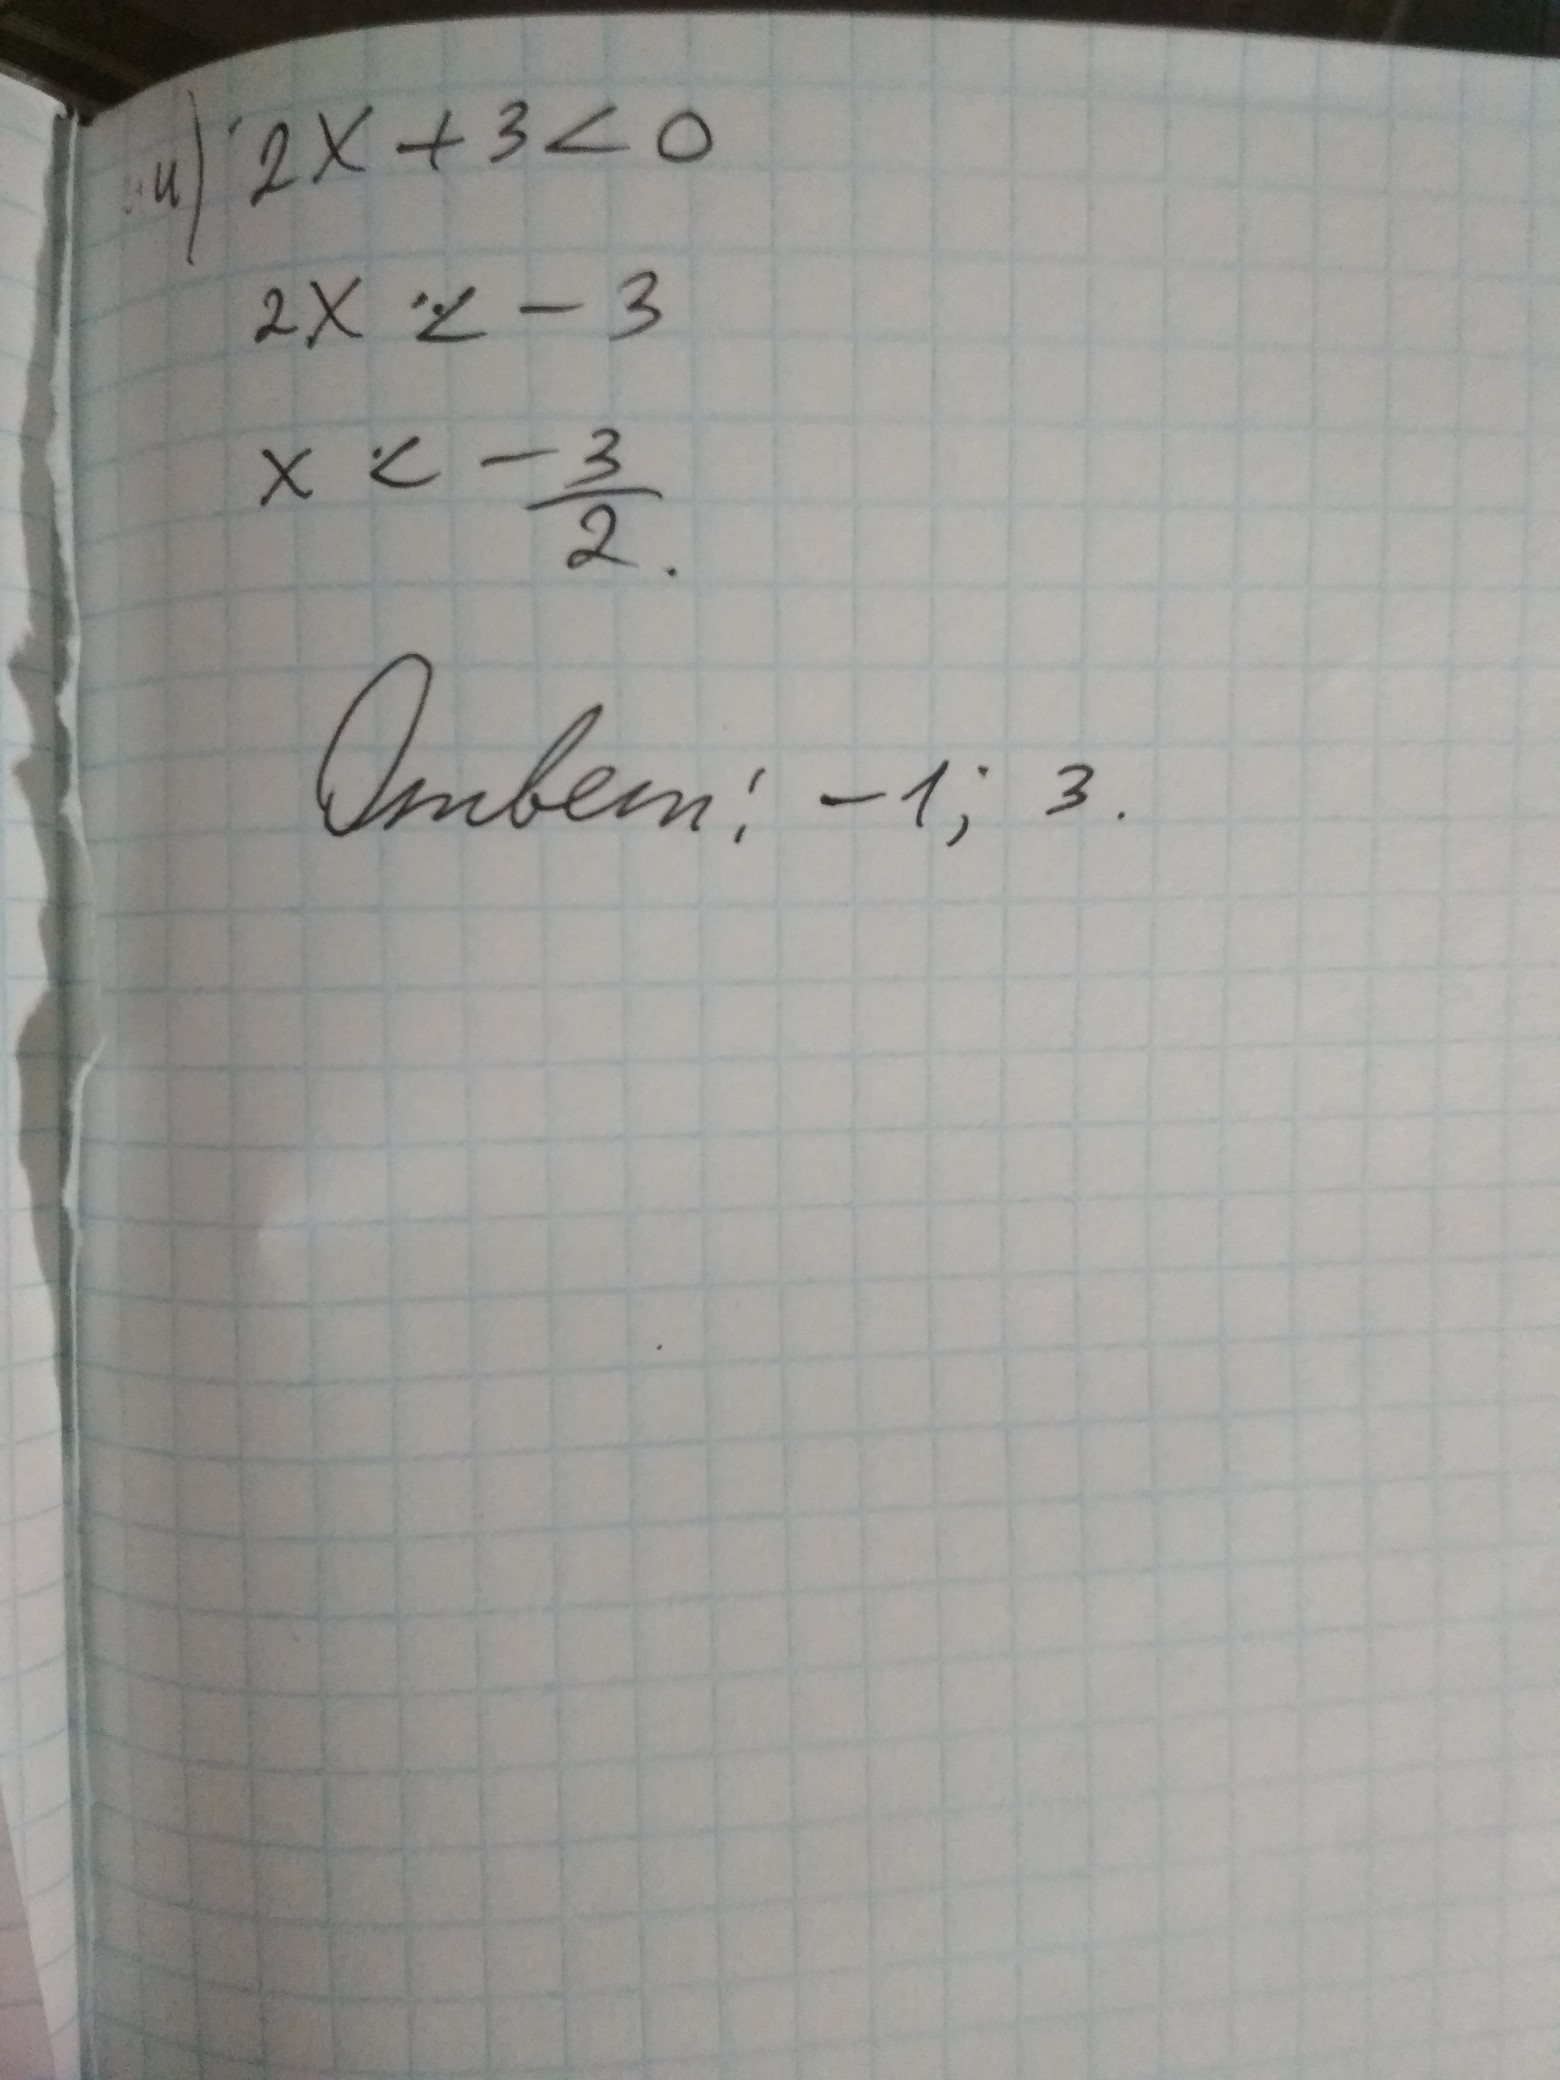 и) 2x + 3 < 0
2x < - 3
x < - 3/2.
Ответ: -1; 3.